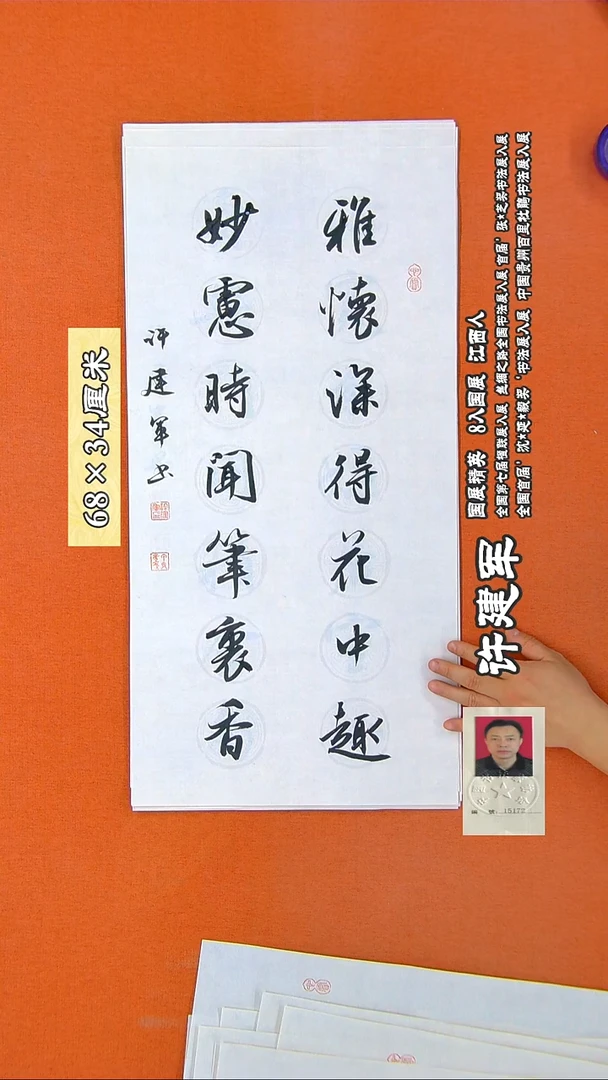 雅懷深得花中趣
妙慮時聞筆裏香
許建軍书
68×34厘米
国展精英 8入国展 江西人
全国第七届楹联展入展 丝绸之路全国书法展入展 首届'张*芝奖书法展入展
全国首届'沈*延*毅奖'书法展入展 中国贵州百里杜鹃书法展入展
许建军
编号:15172